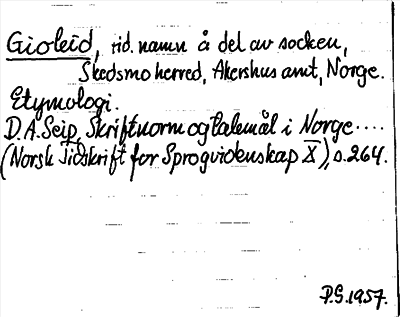 Gioleid, tid. namn å del av socken,
Skedsmo herred, Akershus amt, Norge.
Etymologi.
D.A. Seip, Skriftnorm og talemål i Norge....
(Norsk Tidskrift for Sprogvidenskap X), s. 264.
P.G. 1957.